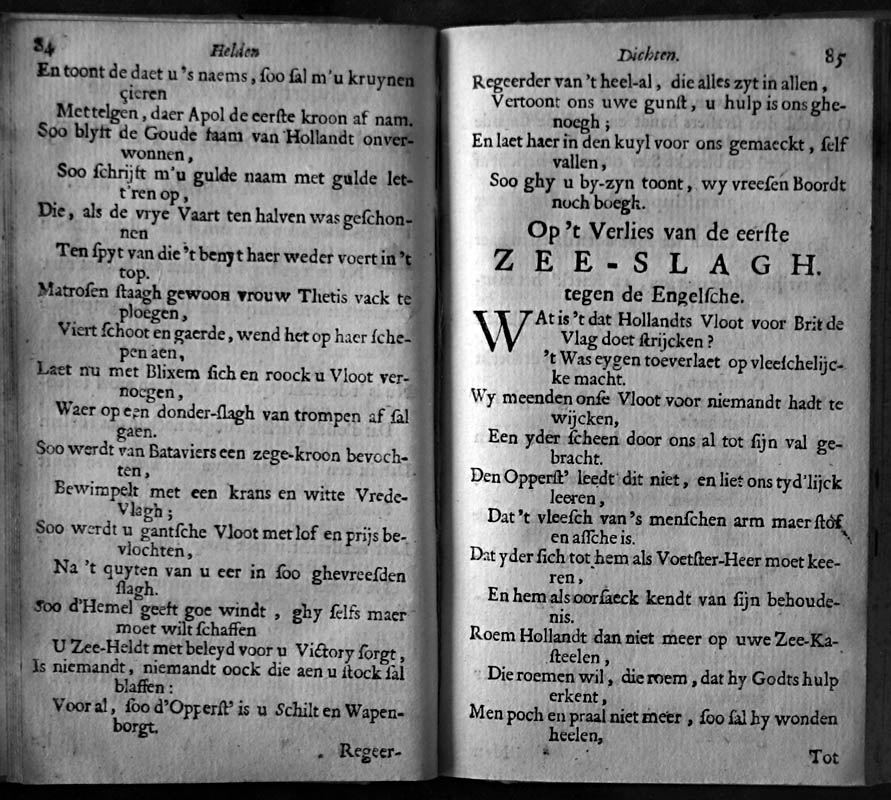 84
Helden
En toont de daet u 's naems, ſoo ſal m'u kruynen
çieren
Met telgen, daer Apol de eerſte kroon af nam.
Soo blyft de Goude faam van Hollandt onver-
wonnen,
Soo ſchrijft m'u gulde naam met gulde let-
t'ren op,
Die, als de vrye Vaart ten halven was geſchon-
nen
Ten ſpyt van die 't benyt haer weder voert in 't
top.
Matroſen ſtaagh gewoon vrouw Thetis vack te
ploegen,
Viert ſchoot en gaerde, wend het op haer ſche-
pen aen,
Laet nu met Blixem ſich en roock u Vloot ver-
noegen,
Waer op een donder-ſlagh van trompen af ſal
gaen.
Soo werdt van Bataviers een zege-kroon bevoch-
ten,
Bewimpelt met een krans en witte Vrede-
Vlagh;
Soo werdt u gantſche Vloot met lof en prijs be-
vlochten,
Na 't quyten van u eer in ſoo ghevreeſden
ſlagh.
Soo d'Hemel geeft goe windt, ghy ſelfs maer
moet wilt ſchaffen
U Zee-Heldt met beleyd voor u Victory ſorgt,
Is niemandt, niemandt oock die aen u ſtock ſal
blaffen:
Voor al, ſoo d'Opperſt' is u Schilt en Wapen-
borgt.
Regeer-
Dichten.
85
Regeerder van 't heel-al, die alles zyt in allen,
Vertoont ons uwe gunſt, u hulp is ons ghe-
noegh;
En laet haer in den kuyl voor ons gemaeckt, ſelf
vallen,
Soo ghy u by-zyn toont, wy vreeſen Boordt
noch boegk.
Op 't Verlies van de eerſte
ZEE-SLAGH.
tegen de Engelſche.
WAt is 't dat Hollandts Vloot voor Brit de
Vlag doet ſtrijcken?
't Was eygen toeverlaet op vleeſchelijc-
ke macht.
Wy meenden onſe Vloot voor niemandt hadt te
wijcken,
Een yder ſcheen door ons al tot ſijn val ge-
bracht.
Den Opperſt' leedt dit niet, en liet ons tyd'lijck
leeren,
Dat 't vleeſch van 's menſchen arm maer ſtof
en aſſche is.
Dat yder ſich tot hem als Voetſter-Heer moet kee-
ren,
En hem als oorſaeck kendt van ſijn behoude-
nis.
Roem Hollandt dan niet meer op uwe Zee-Ka-
ſteelen,
Die roemen wil, die roem, dat hy Godts hulp
erkent,
Men poch en praal niet meer, ſoo ſal hy wonden
heelen,
Tot